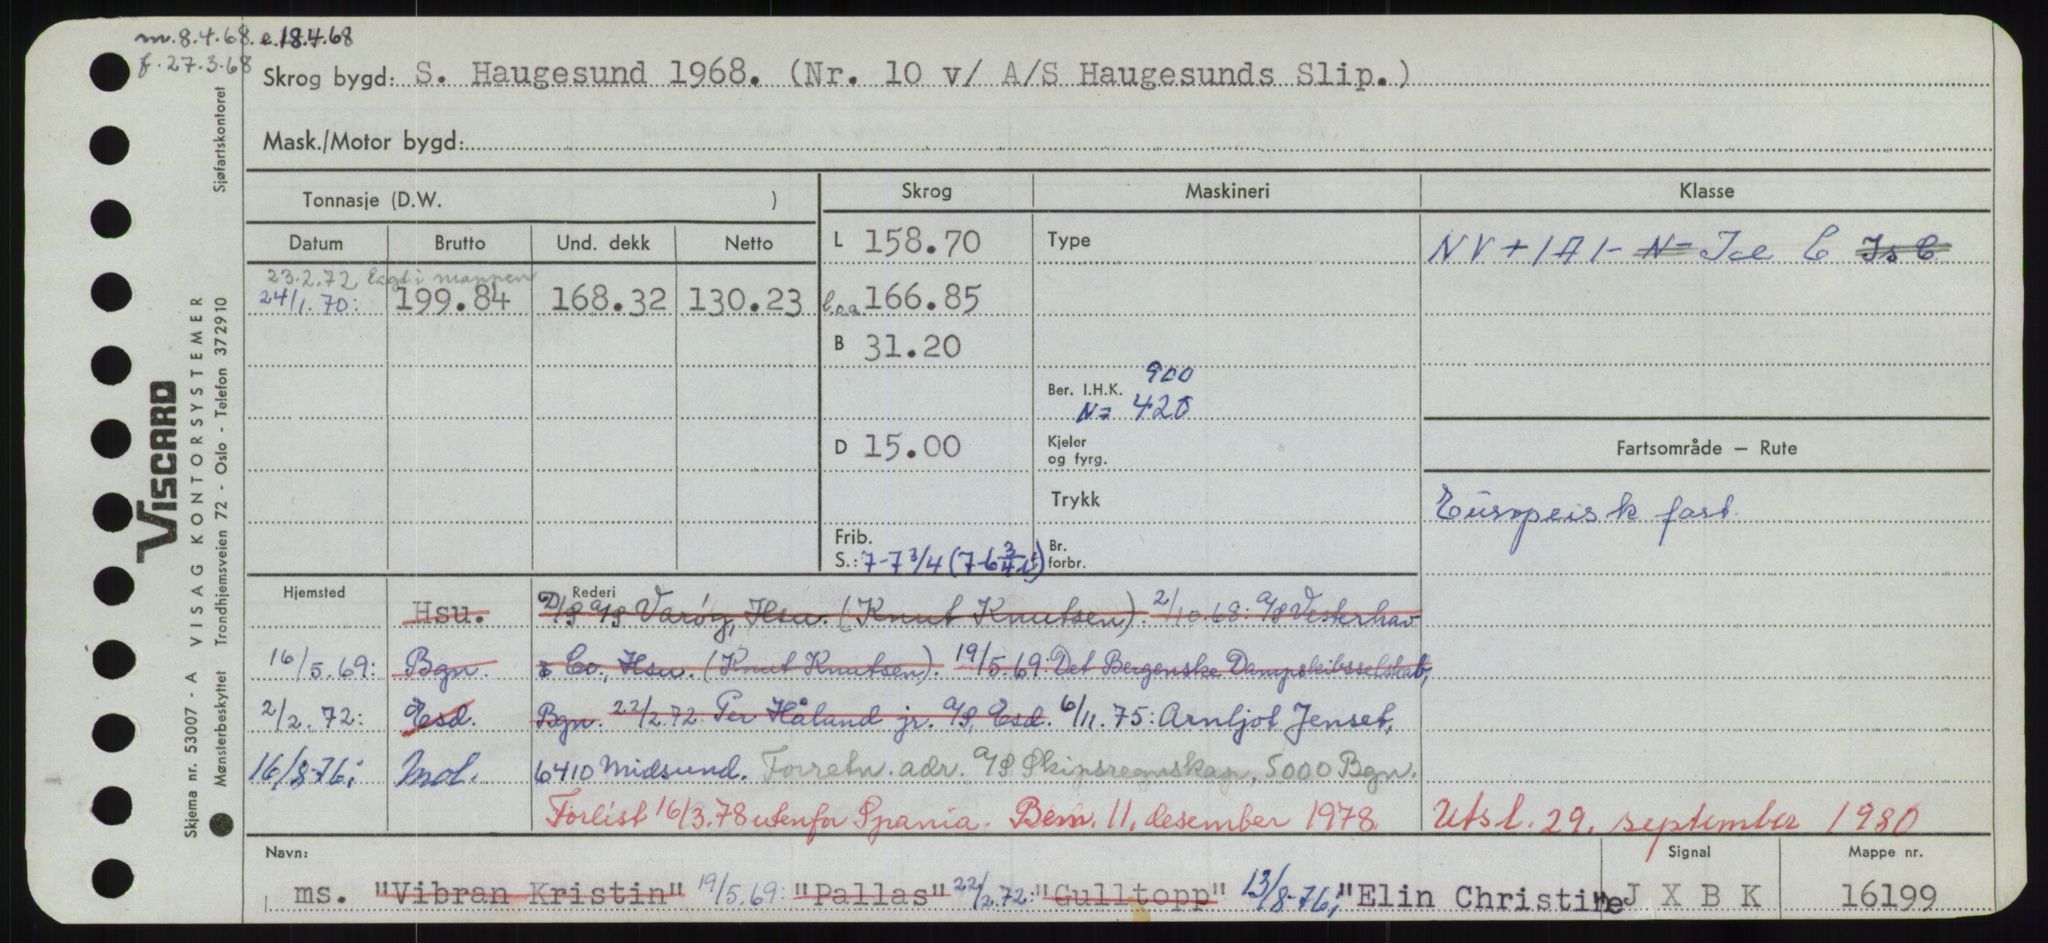 m. 8.4.68. e. 18.4.68
f. 27.3.68
Skrog bygd: S. Haugesund 1968. (Nr. 10 v/ A/S Haugesunds Slip.)
Mask./Motor bygd:
Tonnasje (D.W. )
Skrog Maskineri Klasse
Datum Brutto Und. dekk Netto
L 158.70
Type
NV + 1A1 - N= Ice C Is C
23.2.72 Lagt i mappen
24/1.70: 199.84 168.32 130.23
l.o.a 166.85
B 31.20
900
Ber. I.H.K.
N= 420
D 15.00
Kjeler
og fyrg.
Fartsområde — Rute
Trykk
Europeisk fart
Frib.
S.: 7-7 3/4 (7-6 3/4 )
Br.
forbr.
Hjemsted Rederi
Hsu. D/S A/S Varøy, Hsu. (Knut Knutsen). 2/10.68: A/S Vesterhav
16/5.69: Bgn. & Co., Hsu. (Knut Knutsen). 19/5.69: Det Bergenske Dampskibsselskab,
2/2.72: Esd. Bgn. 22/2.72: Per Håland jr. A/S, Esd. 6/11.75: Arnljot Jenset,
16/8-76: Mol. 6410 Midsund. Forretn. adr. A/S Skipsregnskap, 5000 Bgn.
Forlist 16/3.78 utenfor Spania. Bem. 11. desember 1978 Utsl. 29. september 1980
Navn: Signal Mappe nr.
ms. "Vibran Kristin" 19/5.69: "Pallas" 22/2.72: "Gulltopp" 13/8-76: "Elin Christine" J X B K 16199
Sjøfartskontoret
VISCARD
A VISAG KONTORSYSTEMER
Skjema nr. 53007 -
Mønsterbeskyttet Trondhjemsveien 72 - Oslo - Telefon 372910